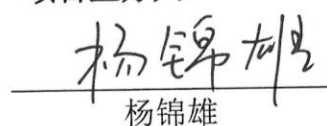 杨锦雄
杨锦雄